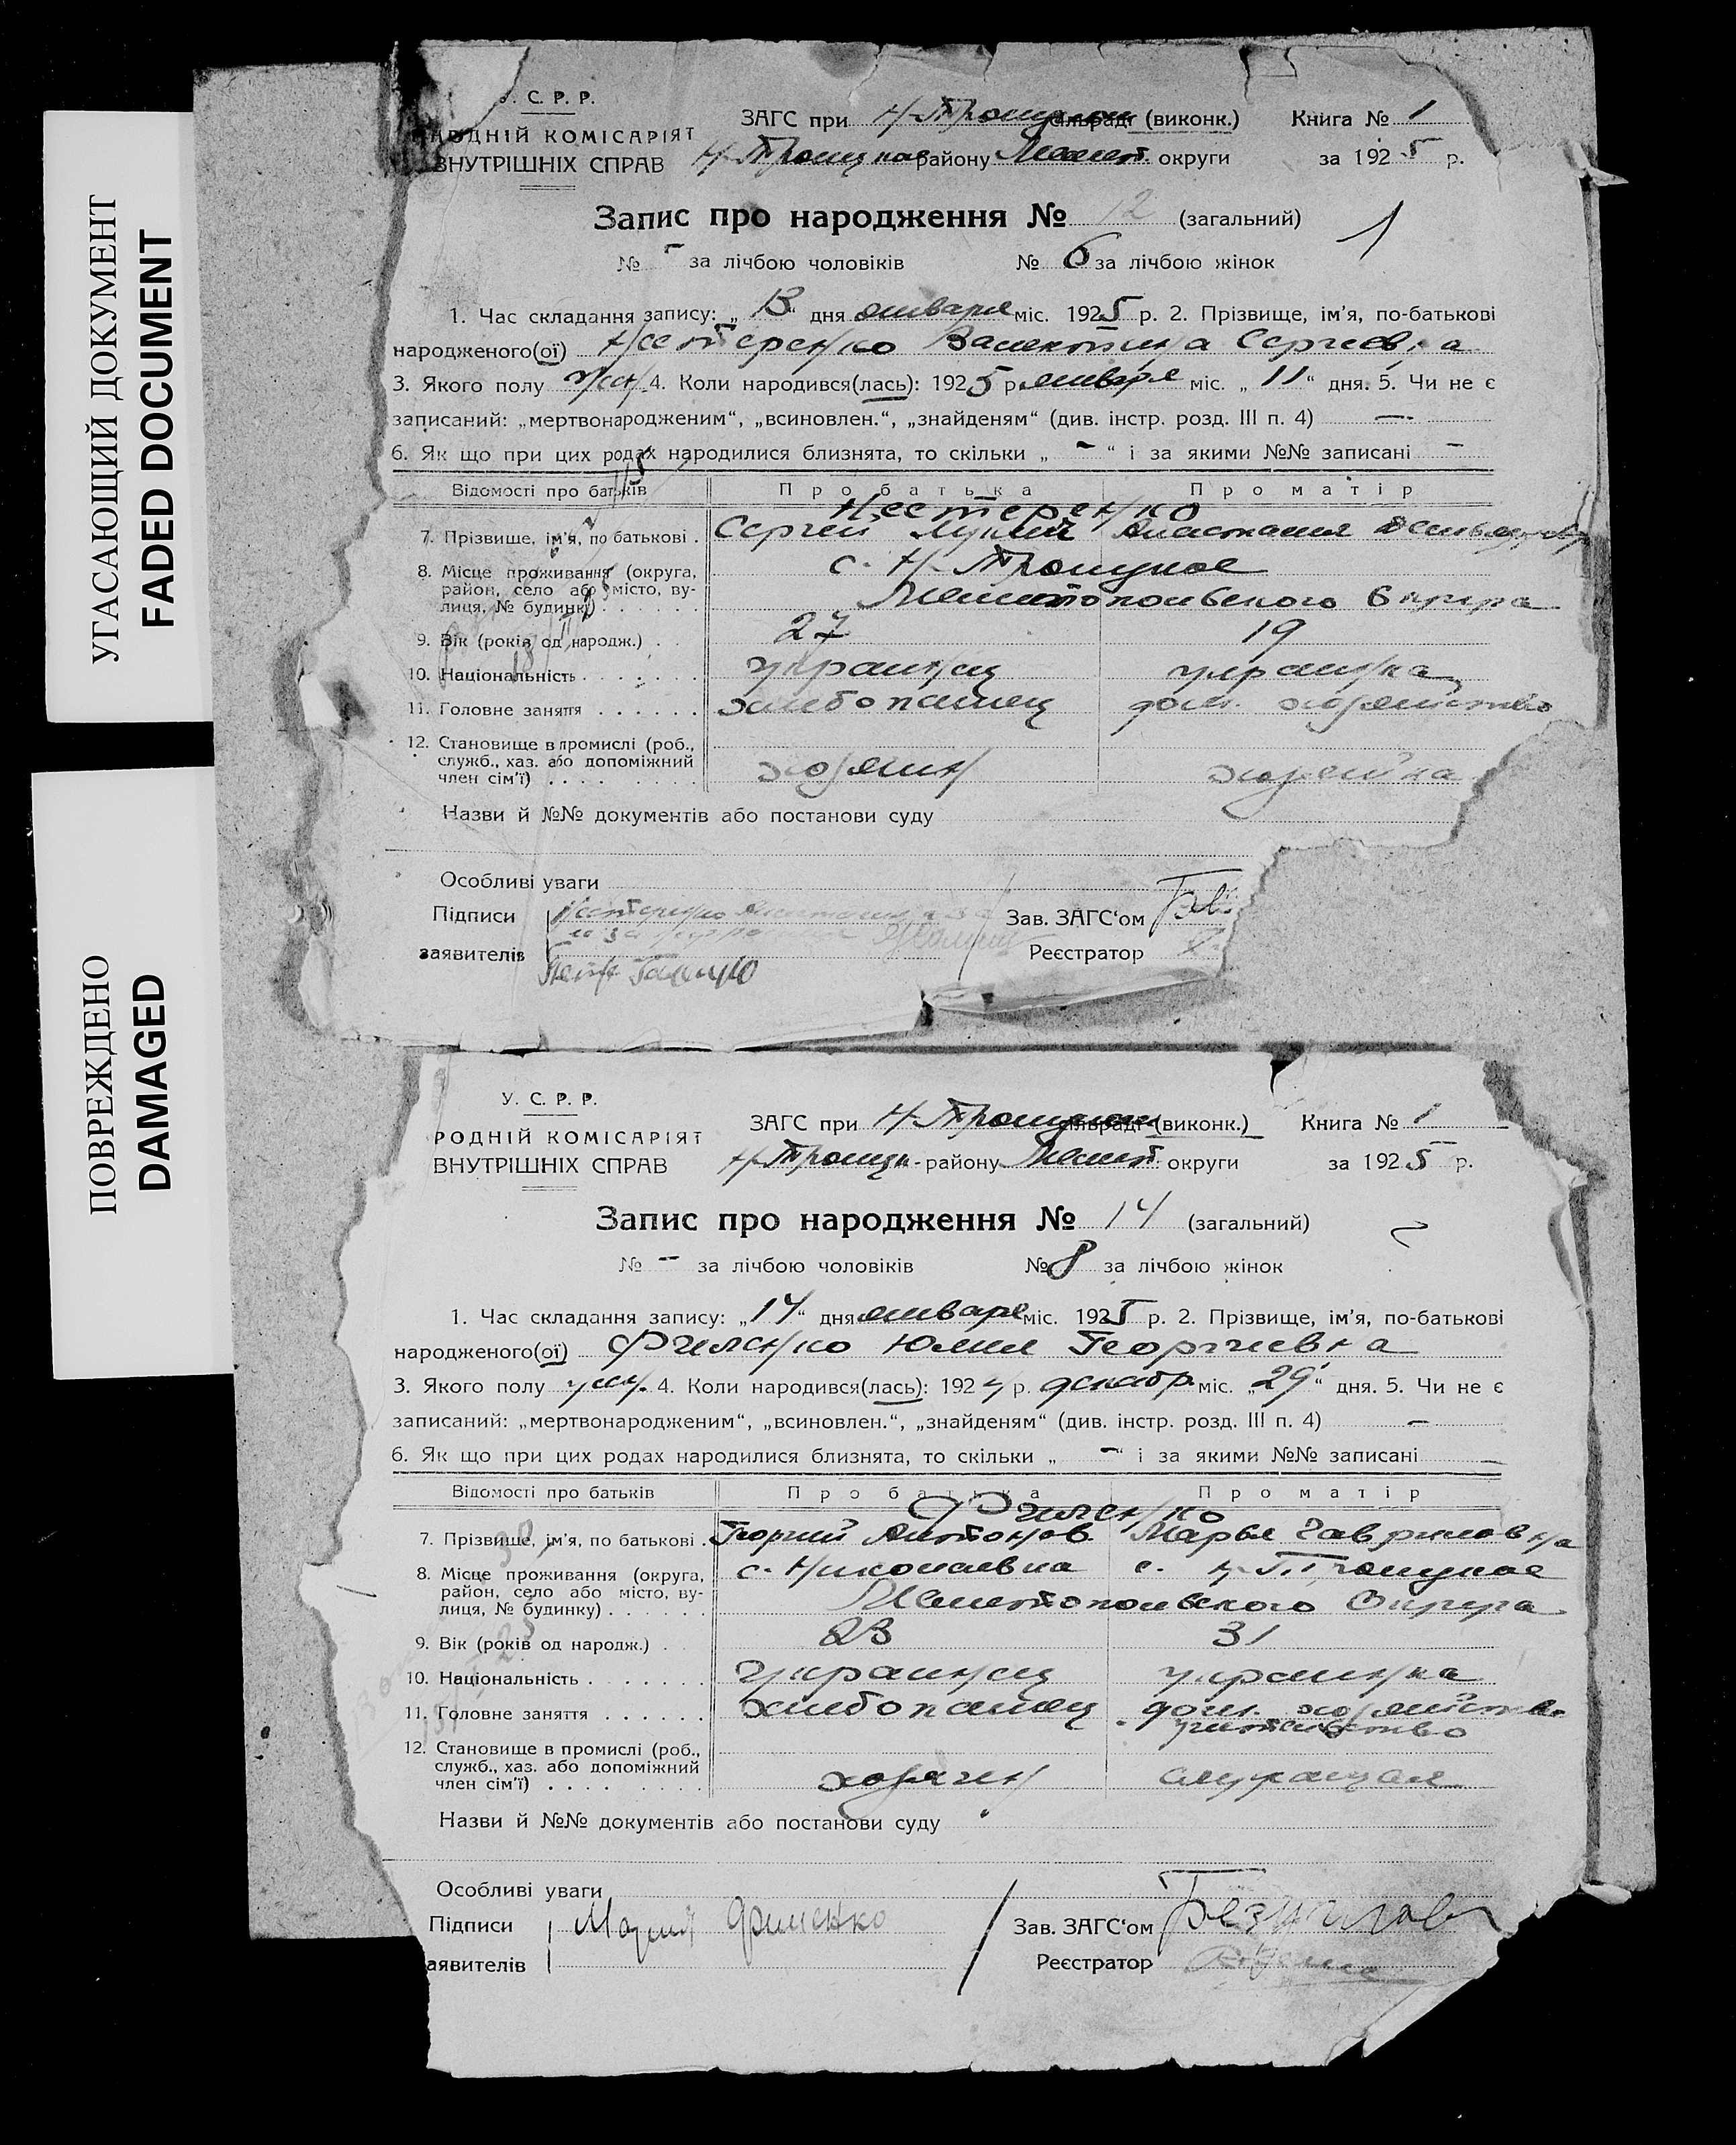 УГАСАЮЩИЙ ДОКУМЕНТ
FADED DOCUMENT
ПОВРЕЖДЕНО
DAMAGED
С. Р. Р.
РОДНІЙ КОМІСАРІЯТ
ВНУТРІШНІХ СПРАВ
ЗАГС при Н-Троицком сільраді (виконк.) Книга № 1
Н-Троицкое району Мелит. округи за 1925 р.
Запис про народження № 12 (загальний)
1
№ - за лічбою чоловіків № 6 за лічбою жінок
1. Час складання запису: „13“ дня января міс. 1925 р. 2. Прізвище, ім’я, по-батькові
народженого(ої) Нестеренко Валентина Сергеевна
3. Якого полу жен. 4. Коли народився(лась): 1925 р. января міс. „11“ дня. 5. Чи не є
записаний: „мертвонародженим“, „всиновлен.“, „знайденям“ (див. інстр. розд. III п. 4) —
6. Як що при цих родах народилися близнята, то скільки „ - “ і за якими №№ записані -
Відомості про батьків Про батька Про матір
Нестеренко
7. Прізвище, ім’я, по батькові . Сергей Анастасия
8. Місце проживання (округа, район, село або місто, вулиця, № будинку) с. Н-Троицкое
Мелитопольского Округа
9. Вік (років од народж.) 27 19
10. Національність украинец украинка
11. Головне заняття хлебопашец дом. хозяйство
12. Становище в промислі (роб., служб., хаз. або допоміжний член сім’ї) хозяин хозяйка
Назви й №№ документів або постанови суду
Особливі уваги
Підписи Нестеренко
заявителів
Петр
Зав. ЗАГС‘ом
Реєстратор
У. С. Р. Р.
РОДНІЙ КОМІСАРІЯТ
ВНУТРІШНІХ СПРАВ
ЗАГС при Н-Троицком сільраді (виконк.) Книга № 1
Н-Троицк- району Мелит. округи за 1925 р.
Запис про народження № 14 (загальний)
2
№ - за лічбою чоловіків № 8 за лічбою жінок
1. Час складання запису: „14“ дня января міс. 1925 р. 2. Прізвище, ім’я, по-батькові
народженого(ої) Филенко Юлия Георгиевна
3. Якого полу жен. 4. Коли народився(лась): 1924 р. декабр. міс. „29“ дня. 5. Чи не є
записаний: „мертвонародженим“, „всиновлен.“, „знайденям“ (див. інстр. розд. III п. 4) —
6. Як що при цих родах народилися близнята, то скільки „ - “ і за якими №№ записані
Відомості про батьків Про батька Про матір
Филенко
7. Прізвище, ім’я, по батькові . Георгий Антонов Марья Гавриловна
8. Місце проживання (округа, район, село або місто, вулиця, № будинку) с. Николаевка с. Н-Троицкое
Мелитопольского Округа
9. Вік (років од народж.) 23 31
10. Національність украинец украинка
11. Головне заняття хлебопашец дом. хозяйство
учительство
12. Становище в промислі (роб., служб., хаз. або допоміжний член сім’ї) хозяин служащая
Назви й №№ документів або постанови суду
Особливі уваги
Підписи Мария Филенко
аявителів
Зав. ЗАГС‘ом
Реєстратор